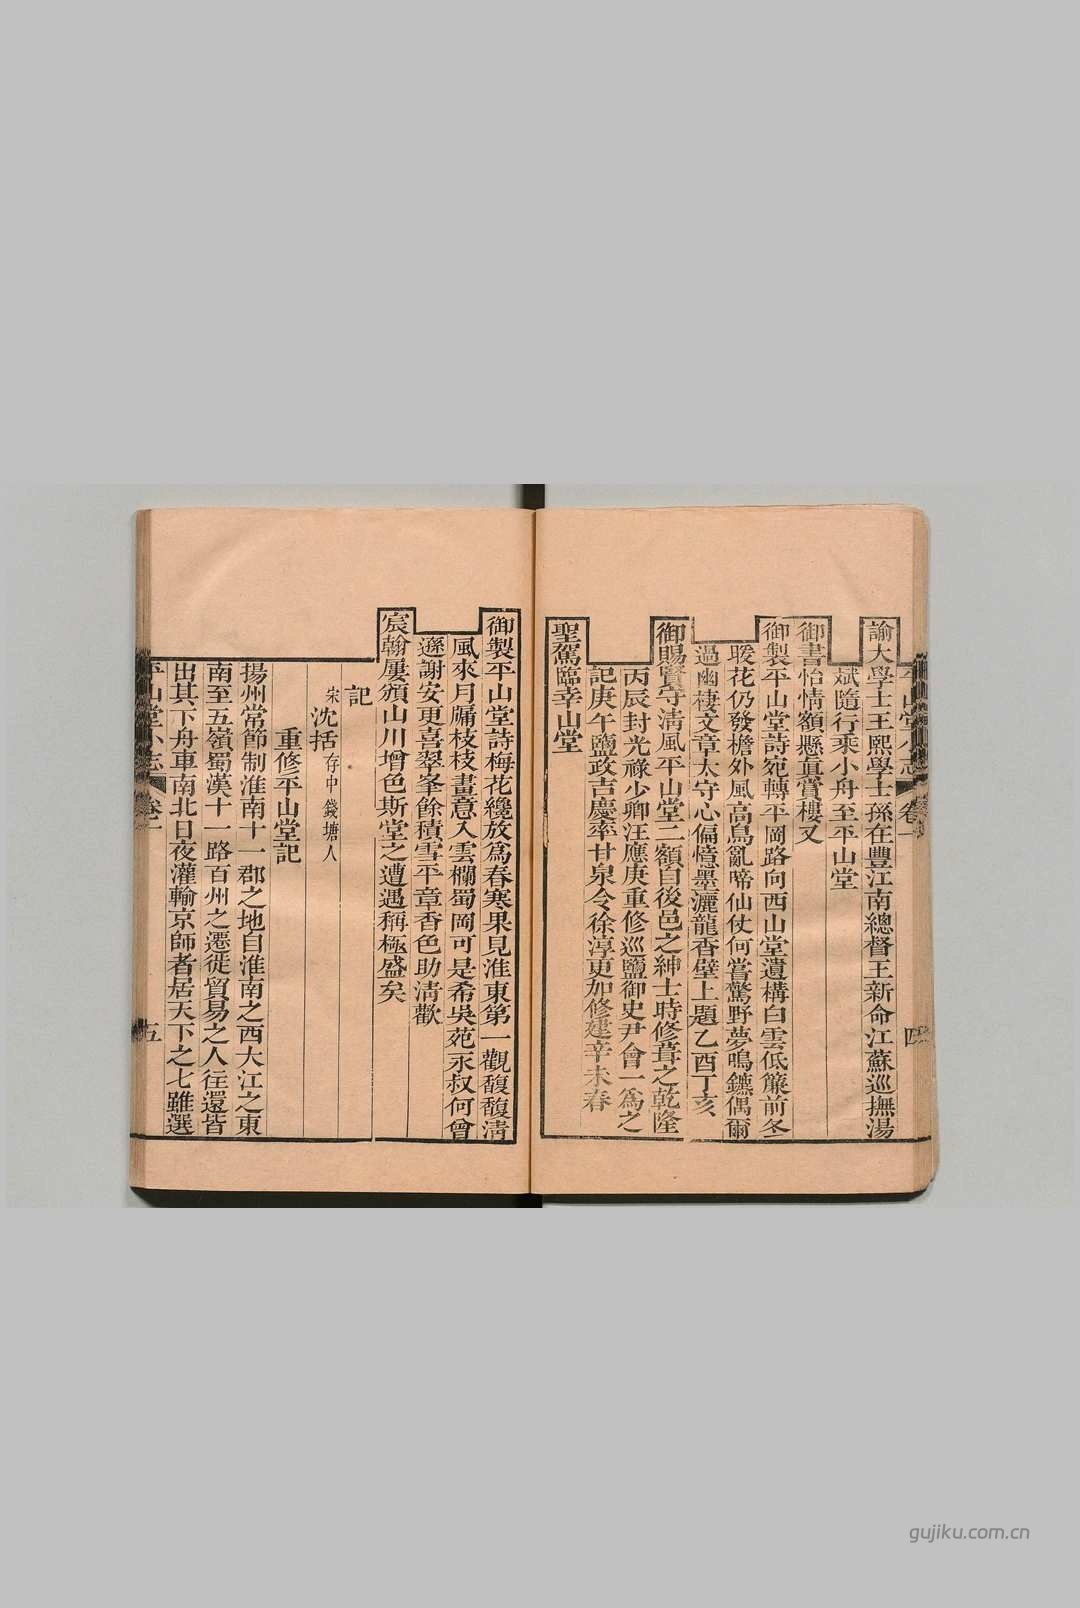 平山堂小志 卷一 四
諭大學士王熙學士孫在豐江南總督王新命江蘇巡撫湯
斌隨行乘小舟至平山堂
御書怡情額懸真賞樓又
御製平山堂詩宛轉平岡路向西山堂遺構白雲低簾前冬
暖花仍發檐外風高鳥亂啼仙仗何嘗驚野夢鳴鑣偶爾
過幽棲文章太守心偏憶墨灑龍香壁上題乙酉丁亥
御賜賢守清風平山堂二額自後邑之紳士時修葺之乾隆
丙辰封光祿少卿汪應庚重修巡鹽御史尹會一為之
記庚午鹽政吉慶率甘泉令徐淳更加修建辛未春
聖駕臨幸山堂
御製平山堂詩梅花纔放為春寒果見淮東第一觀馥馥清
風來月牖枝枝畫意入雲欄蜀岡可是希吳苑永叔何曾
遜謝安更喜翠峯餘積雪平章香色助清歡
宸翰屢頒山川增色斯堂之遭遇稱極盛矣
記
宋 沈括 存中 錢塘人
重修平山堂記
揚州常節制淮南十一郡之地自淮南之西大江之東
南至五嶺蜀漢十一路百州之遷徙貿易之人往還皆
出其下舟車南北日夜灌輸京師者居天下之七雖選
平山堂小志 卷一 五
gujiku.com.cn